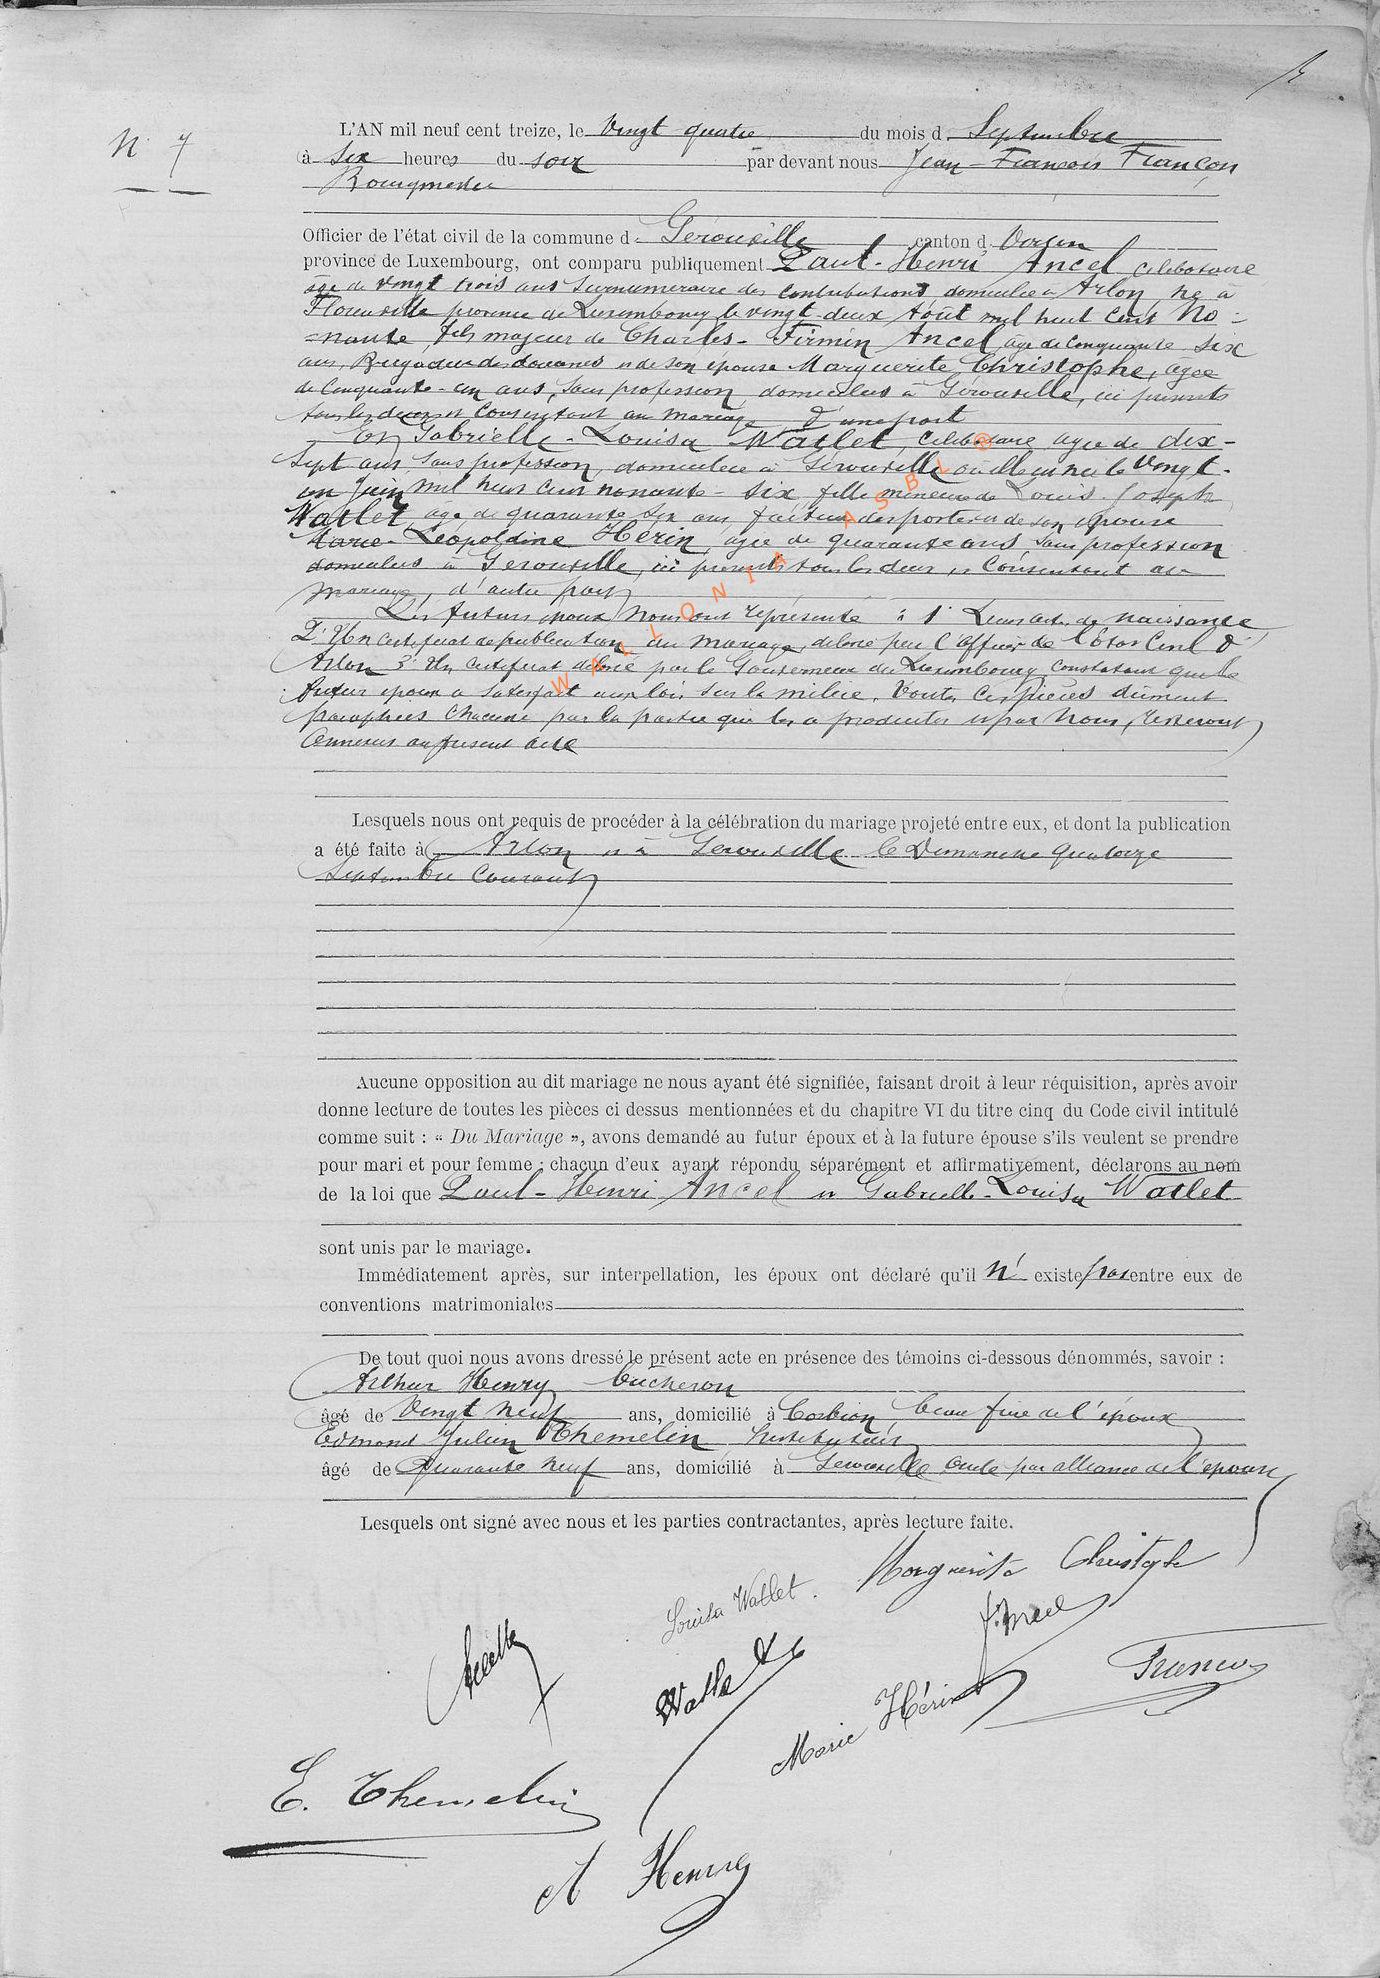 N° 7
L'AN mil neuf cent treize, le Vingt quatre du mois d Septembre
à Six heures du soir par devant nous Jean-François Françon
Bourgmestre
Officier de l'état civil de la commune d Gérouville canton d Virton
province de Luxembourg, ont comparu publiquement Paul-Henri Ancel célibataire
âgé de vingt trois ans Surnuméraire des contributions, domicilié à Arlon, né à
Florenville province de Luxembourg le vingt-deux Août mil huit cent No-
=nante, fils majeur de Charles-Firmin Ancel, âgé de cinquante six
ans, Brigadier des douanes et de son épouse Marguerite Christophe, âgée
de cinquante-un ans, Sans profession, domiciliés à Gérouville, ici présents
tous les deux et consentant au mariage d'une part
Et Gabrielle-Louisa Watlet, Célibataire, âgée de dix-
Sept ans, Sans profession, domiciliée à Gérouville où elle est née le Vingt-
un Juin mil huit cent nonante-six, fille mineure de Louis-Joseph
Watlet, âgé de quarante six ans, facteur des postes et de son épouse
Marie-Léopoldine Hérin, âgée de quarante ans, Sans profession
domiciliés à Gérouville, ici présents tous les deux et Consentant au
mariage, d'autre part
Les futurs époux Nous ont représenté : 1° Leurs actes de naissance
2° Un certificat de publication du mariage, délivré par l'officier de l'état Civil d'
Arlon 3° Un certificat délivré par le Gouverneur du Luxembourg constatant que le
futur époux a satisfait aux lois sur la milice. Toutes ces pièces dûment
paraphées chacune par la partie qui les a produites et par Nous, resteront
annexées au présent acte
WALLONIA ASBL ©
Lesquels nous ont requis de procéder à la célébration du mariage projeté entre eux, et dont la publication
a été faite à Arlon et à Gérouville le Dimanche quatorze
Septembre Courant
Aucune opposition au dit mariage ne nous ayant été signifiée, faisant droit à leur réquisition, après avoir
donne lecture de toutes les pièces ci dessus mentionnées et du chapitre VI du titre cinq du Code civil intitulé
comme suit : « Du Mariage », avons demandé au futur époux et à la future épouse s'ils veulent se prendre
pour mari et pour femme ; chacun d'eux ayant répondu séparément et affirmativement, déclarons au nom
de la loi que Paul-Henri Ancel et Gabrielle-Louisa Watlet
sont unis par le mariage.
Immédiatement après, sur interpellation, les époux ont déclaré qu'il n' existe pas entre eux de
conventions matrimoniales
De tout quoi nous avons dressé le présent acte en présence des témoins ci-dessous dénommés, savoir :
Arthur Henry bûcheron
âgé de Vingt neuf ans, domicilié à Corbion, beau frère de l'époux
Edmond Julien Themelin, Instituteur
âgé de Quarante neuf ans, domicilié à Gérouville Oncle par alliance de l'épouse
Lesquels ont signé avec nous et les parties contractantes, après lecture faite.
Marguerite Christophe
Louisa Watlet.
Watlet
Marie Hérin
E. Themelin
A Henry